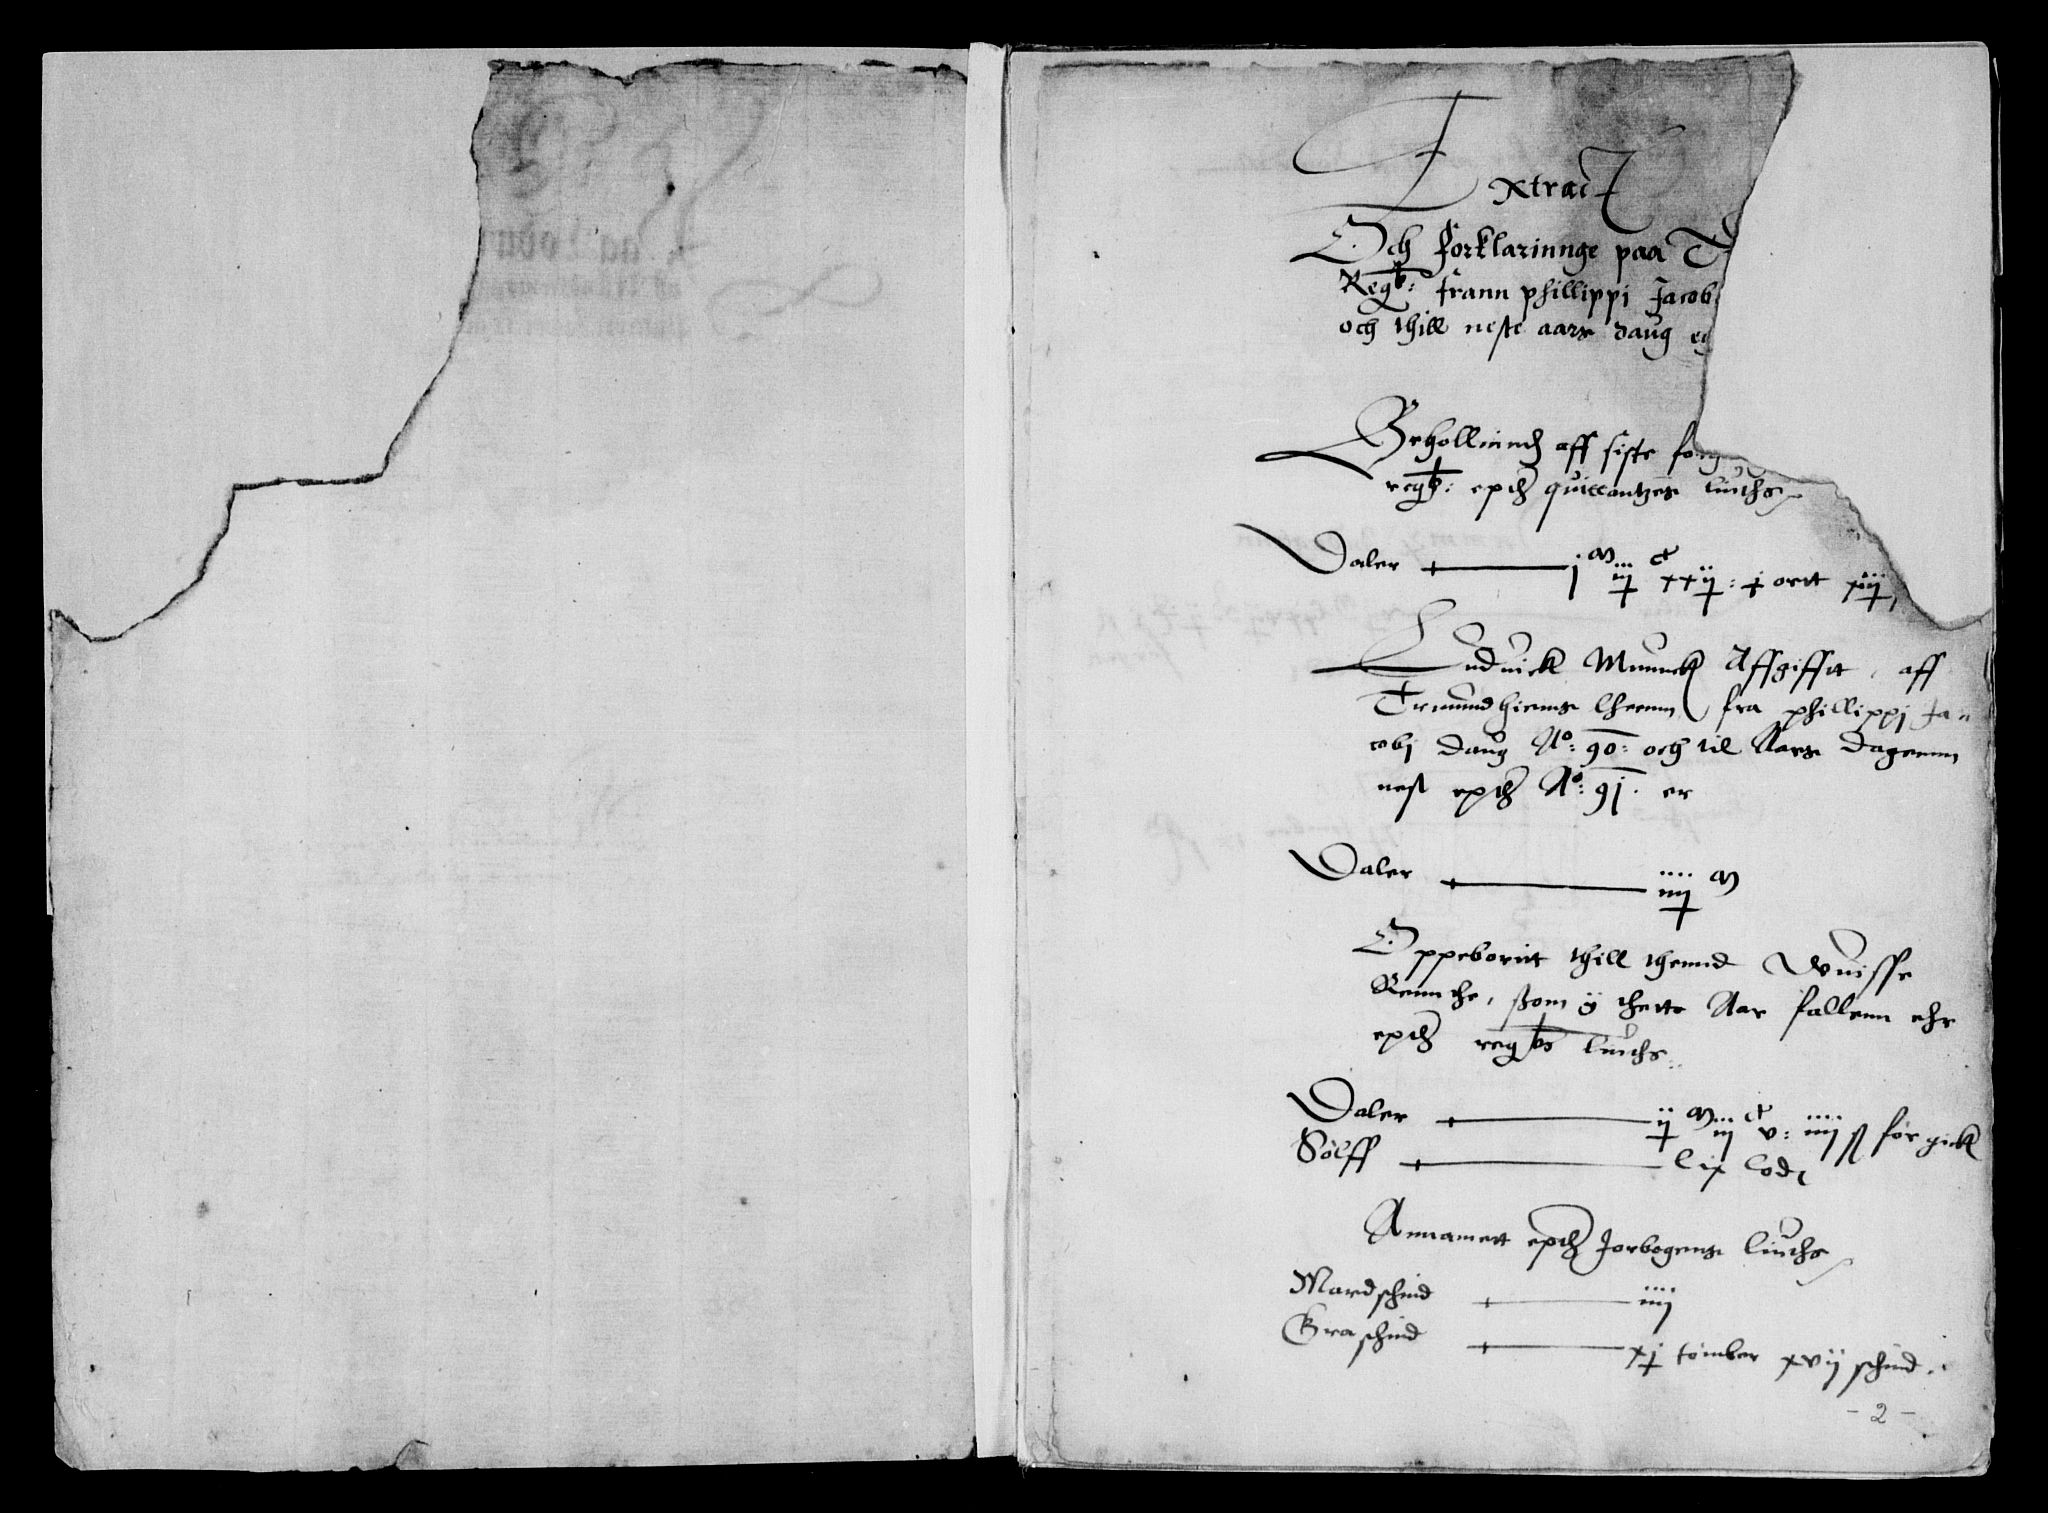 Extract
Och forklarinnge paa T
Regb: frann phillippi Jacob
och thill neste aars daug
Beholliinndh aff siste forg
regb: epther quittantzes liuths
Daler j M iij C xxij: j ortt xiij
Luduick Muunck Affgifftt, aff
Trunndhiems lheenn fra phillippi Ja=
cobj daug Ao: 90: och til Aars dagenn
nest epther Ao: 91. er
Daler iiij M
Oppeboritt thill thennd Wuisse
Rennthe, som y thette Aar fallenn ehr
epther regbs liuths:
Daler ij M iij C v: iiij ß for gick
Sølff lix lod
Annamett epther Jorbogens liuths
Mardschind iiij
Graschind xj tømber xvij schind.
- 2 -